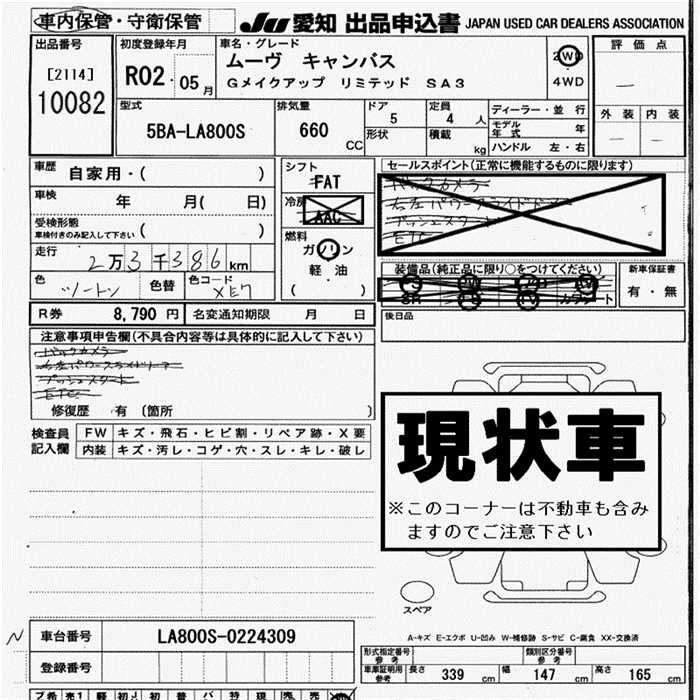 車内保管・守衛保管
JU 愛知 出品申込書 JAPAN USED CAR DEALERS ASSOCIATION
出品番号
[2114]
10082
初度登録年月
R02.05月
車名・グレード
ムーヴ キャンバス
Gメイクアップ リミテッド SA3
2WD
4WD
評価点
―
外装 内装
― ―
型式
5BA-LA800S
排気量
660 CC
ドア
5
形状
定員
4 人
積載
kg
ディーラー・並行
モデル年式 年
ハンドル 左・右
車歴
自家用・( )
車検
年 月( 日)
受検形態
車検付きのみ記入して下さい ( )
走行
2万3千386km
色
ツートン
色替
色コード
XE7
シフト
FAT
冷房
AAC
燃料
ガソリン
軽油
( )
セールスポイント(正常に機能するものに限ります)
バックカメラ
右左パワースライドドアー
プッシュスタート
ETC
装備品(純正品に限り○をつけてください)
SR
カワシート
新車保証書
有・無
後日品
R券 8,790 円 名変通知期限 月 日
注意事項申告欄(不具合内容等は具体的に記入して下さい)
バックカメラ
右左パワースライドドアー
プッシュスタート
ETC
修復歴 有〔箇所 〕
検査員記入欄
FW キズ・飛石・ヒビ割・リペア跡・X要
内装 キズ・汚レ・コゲ・穴・スレ・キレ・破レ
現状車
※このコーナーは不動車も含み
ますのでご注意下さい
スペア
A-キズ E-エクボ U-凹み W-補修跡 S-サビ C-腐食 XX-交換済
N
車台番号 LA800S-0224309
登録番号
形式指定番号 参考
類別区分番号 参考
車庫証明用 参考
長さ 339 cm 幅 147 cm 高さ 165 cm